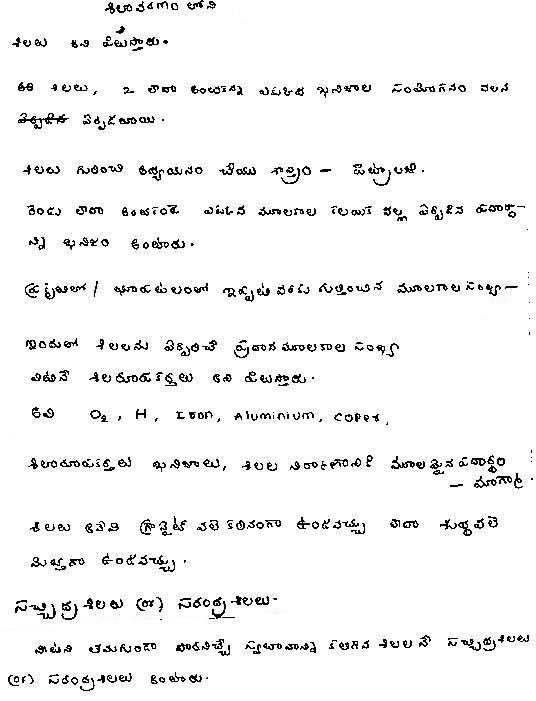 శిలావరణం లోని
శిలలు అని పిలుస్తారు.
ఈ శిలలు, 2 లేదా అంతకన్నా ఎక్కువ ఖనిజాల సంయోగనం వలన
ఏర్పడిన ఏర్పడతాయి.
శిలలు గురించి అధ్యయనం చేయు శాస్త్రం - పెట్రాలజీ.
రెండు లేదా అంతకంటే ఎక్కువ మూలకాల కలయిక వల్ల ఏర్పడిన పదార్థా-
న్ని ఖనిజం అంటారు.
ప్రకృతిలో / భూపటలంలో ఇప్పటి వరకు గుర్తించిన మూలకాల సంఖ్య -
ఇందులో శిలలను ఏర్పరిచే ప్రధాన మూలకాల సంఖ్య
వీటినే శిలరూపకర్తలు అని పిలుస్తారు.
అవి O2, H, Iron, Aluminium, COPPER,
శిలారూపకర్తలు ఖనిజాలు, శిలల నిర్మాణానికి మూలమైన పదార్థం
- మాగ్మా.
శిలలు అనేవి గ్రానైట్ వలె కఠినంగా ఉండవచ్చు లేదా సుద్ద వలె
మెత్తగా ఉండవచ్చు.
సచ్ఛిద్ర శిలలు (or) సరంధ్ర శిలలు.
నీటిని తమగుండా పోనిచ్చే స్వభావాన్ని కలిగిన శిలలనే సచ్ఛిద్ర శిలలు
(or) సరంధ్ర శిలలు అంటారు.